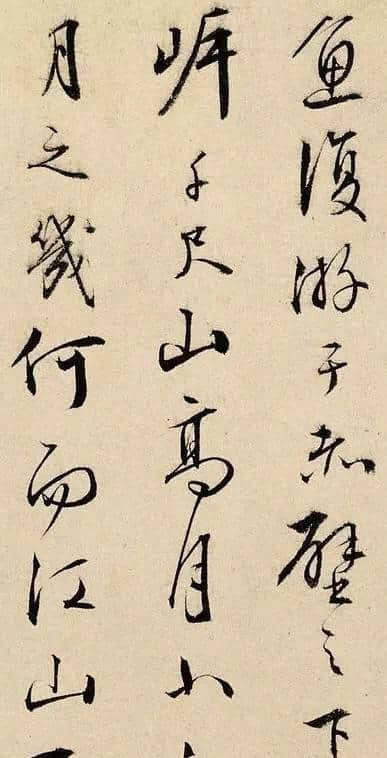 魚復游于赤壁之下
岸千尺山高月小
月之幾何而江山